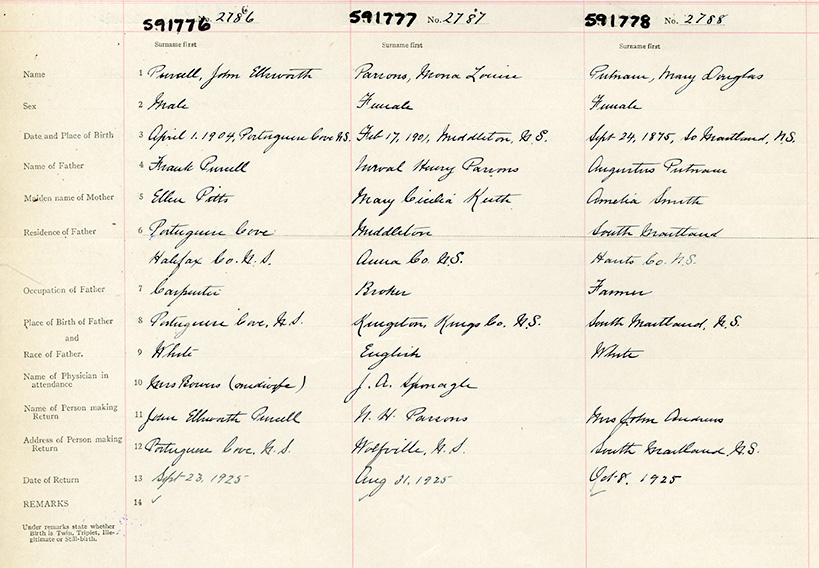 591776 No. 2786 591777 No. 2787 591778 No. 2788
Surname first Surname first Surname first
Name 1 Purcell, John Ellsworth Parsons, Mona Louise Putnam, Mary Douglas
Sex 2 Male Female Female
Date and Place of Birth 3 April 1. 1904, Portuguese Cove N.S. Feb 17, 1901, Middleton, N.S. Sept 24, 1875, So Maitland, N.S.
Name of Father 4 Frank Purcell Norval Henry Parsons Augustus Putnam
Maiden name of Mother 5 Ellen Pitts Mary Cicelia Keith Amelia Smith
Residence of Father 6 Portuguese Cove Middleton South Maitland
Halifax Co. N.S. Anna Co N.S. Hants Co. N.S.
Occupation of Father 7 Carpenter Broker Farmer
Place of Birth of Father 8 Portuguese Cove, N.S. Kingston, Kings Co, N.S. South Maitland, N.S.
and
Race of Father. 9 White English White
Name of Physician in
attendance 10 Mrs Bowers (midwife) J. A. Sponagle
Name of Person making
Return 11 John Ellsworth Purcell N. H. Parsons Mrs John Andrews
Address of Person making
Return 12 Portuguese Cove, N.S. Wolfville, N.S. South Maitland, N.S.
Date of Return 13 Sept 23, 1925 Aug 31, 1925 Oct 8, 1925
REMARKS 14
Under remarks state whether
Birth is Twin, Triplet, Ille-
gitimate or Still-birth.